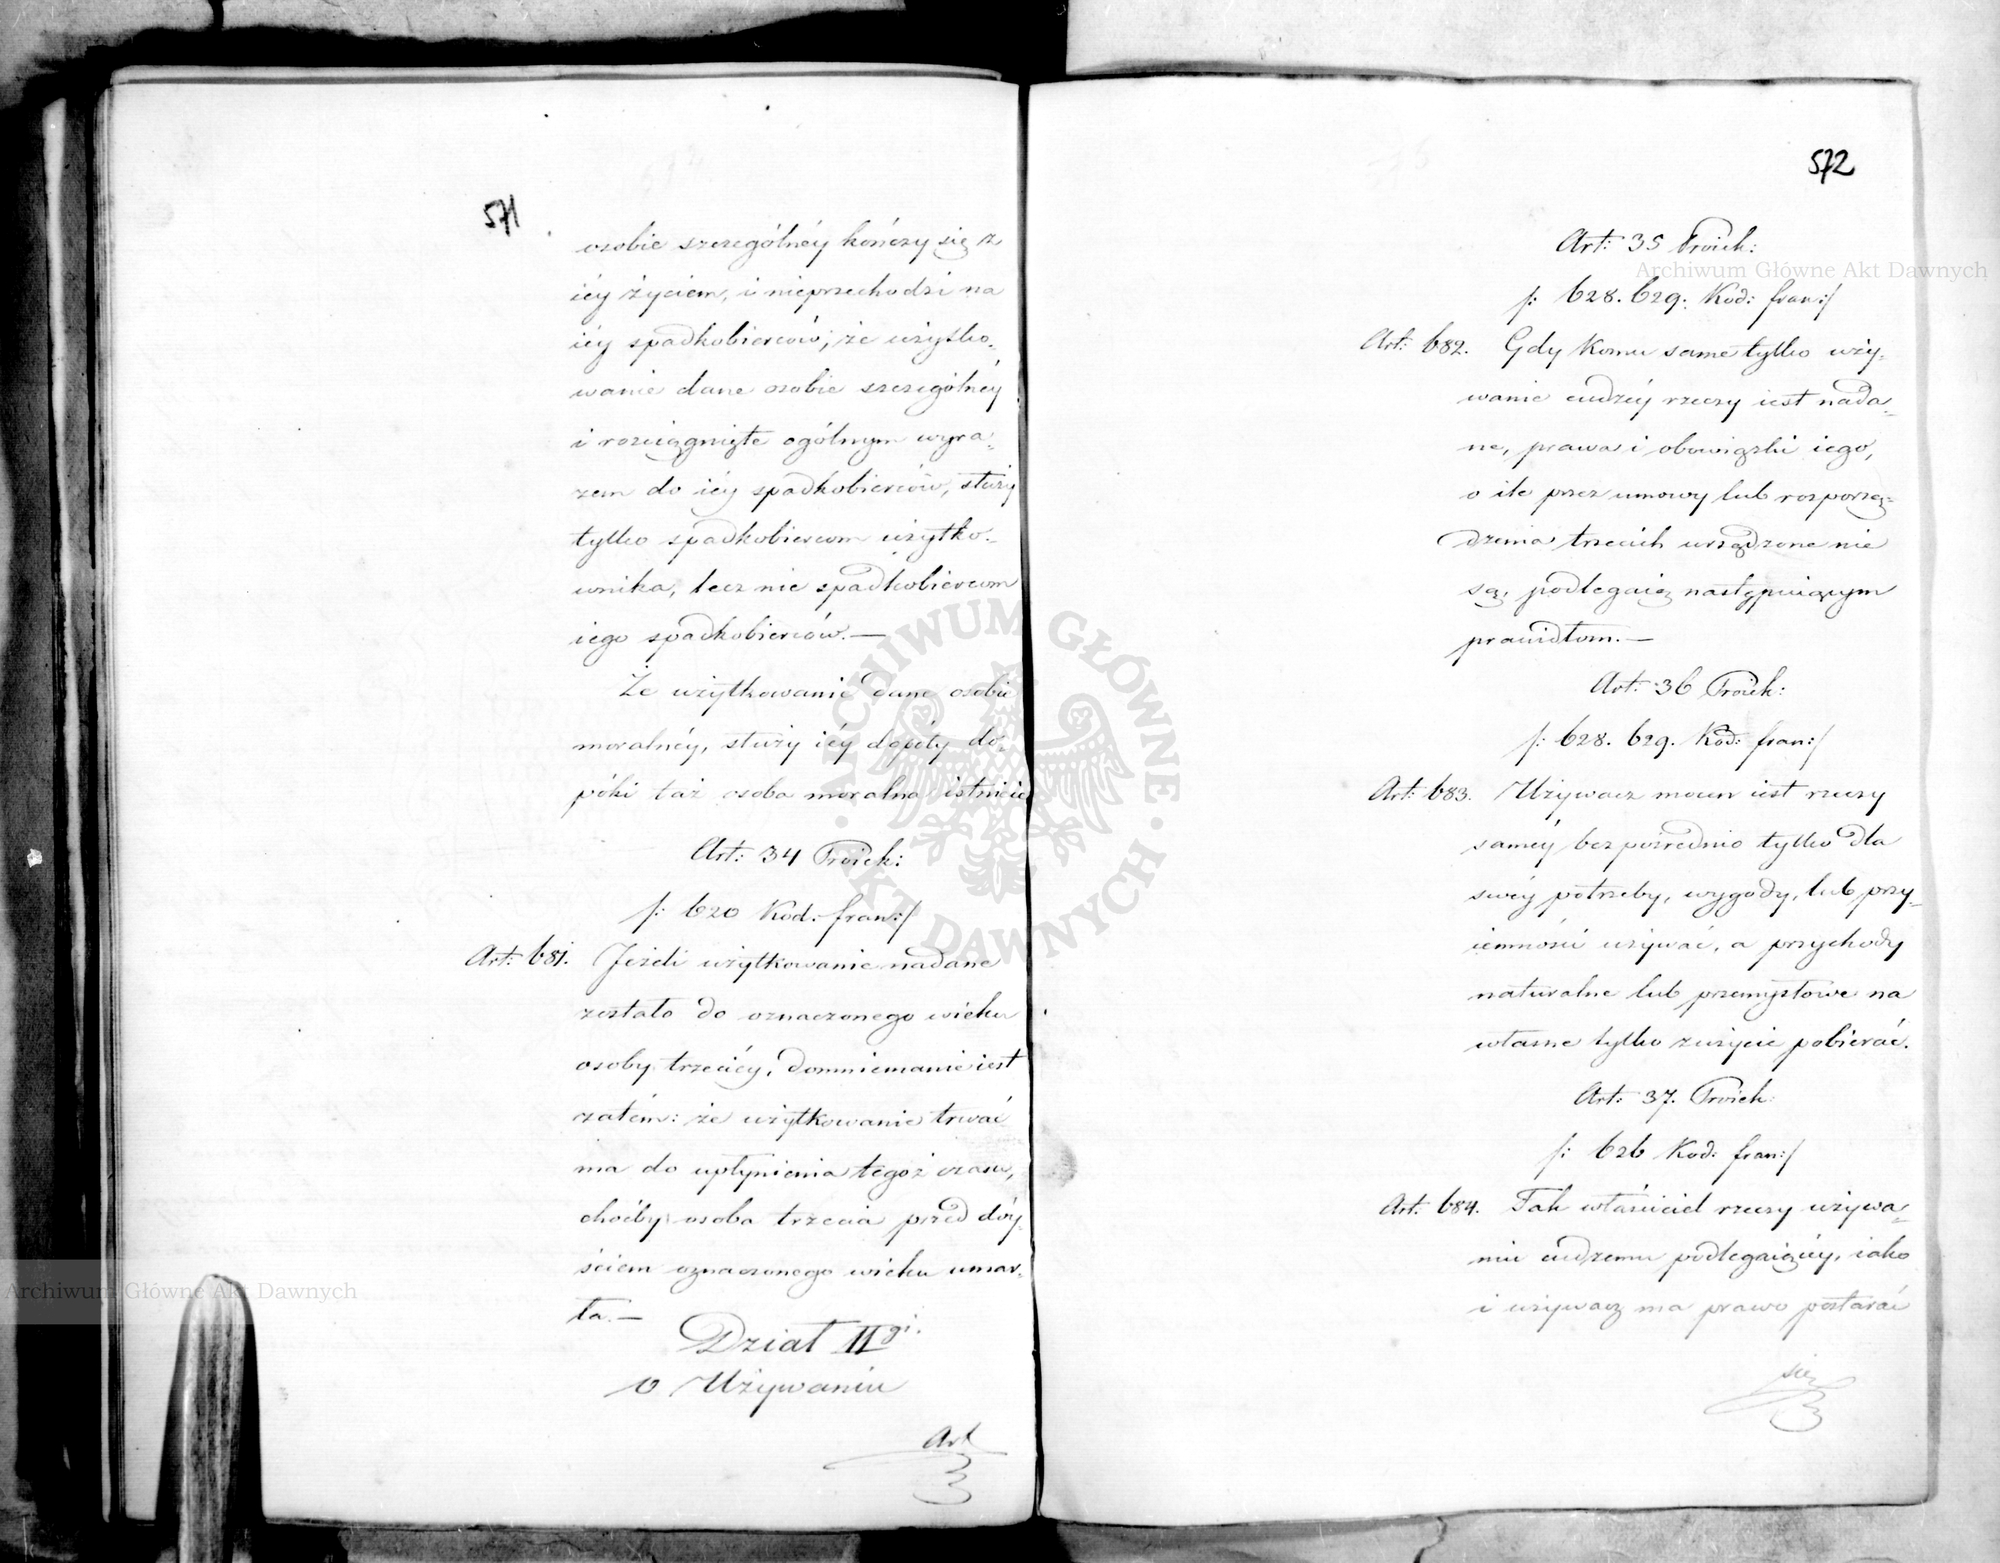 571
osobie szczególnéy kończy się z
iéy życiem, i nieprzechodzi na
iéy spadkobierców; że użytko-
wanie dane osobie szczególnéy
i rozciągnięte ogólnym wyra-
zem do iéy spadkobierców, służy
tylko spadkobiercom użytko-
wnika, lecz nie spadkobiercom
iego spadkobierców.—
Że użytkowanie dane osobie
moralnéy, służy iéy dopóty do-
póki taż osoba moralna istnieie
Art: 34 Proiek:
/: 620 Kod: fran:/
Art: 681. Jeżeli użytkowanie nadane
zostało do oznaczonego wieku
osoby trzeciéy, domniemanie iest
zatém: że użytkowanie trwać
ma do upłynienia tegoż czasu,
choćby osoba trzecia przed dóy-
ściem oznaczonego wieku umar-
ła.—
Dział IIgi.
o Używaniu
Art
572
Art: 35 Proiek:
/: 628. 629. Kod: fran:/
Art: 682. Gdy komu same tylko uży-
wanie cudzéy rzeczy iest nada-
ne, prawa i obowiązki iego,
o ile przez umowy lub rozporzą-
dzenia trzecich urządzone nie
są, podlegaią następuiącym
prawidłom.—
Art: 36 Proiek:
/: 628. 629. Kod: fran:/
Art: 683. Używacz mocen iest rzeczy
saméy bezpośrednio tylko dla
swéy potrzeby, wygody, lub przy-
iemności używać, a przychody
naturalne lub przemysłowe na
własne tylko zużycie pobierać.
Art: 37. Proiek:
/: 626 Kod: fran:/
Art: 684. Tak właściciel rzeczy używa-
niu cudzemu podlegaiącéy, iako
i używacz ma prawo postarać
się
Archiwum Główne Akt Dawnych
Archiwum Główne Akt Dawnych
ARCHIWUM GŁÓWNE AKT DAWNYCH